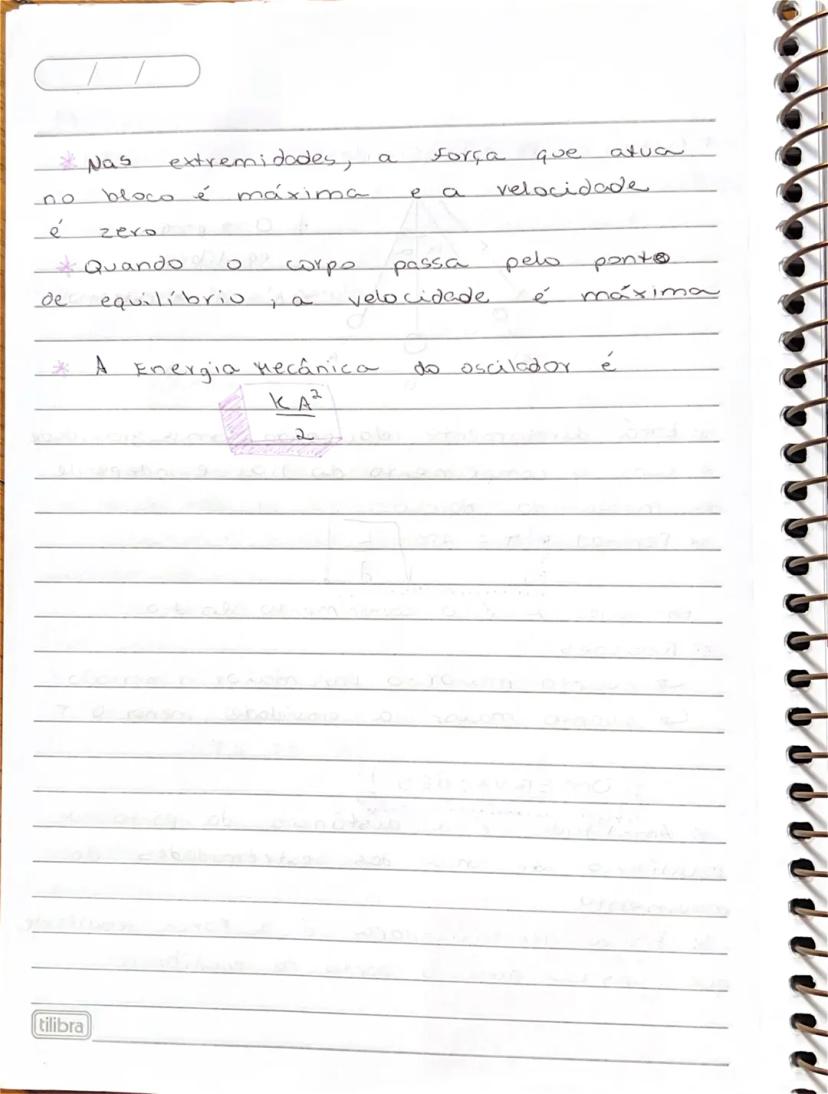 / /
* Nas extremidades, a força que atua
no bloco é máxima e a velocidade
é zero
* Quando o corpo passa pelo ponto
de equilíbrio, a velocidade é máxima
* A Energia Mecânica do oscilador é
KA²
2
tilibra